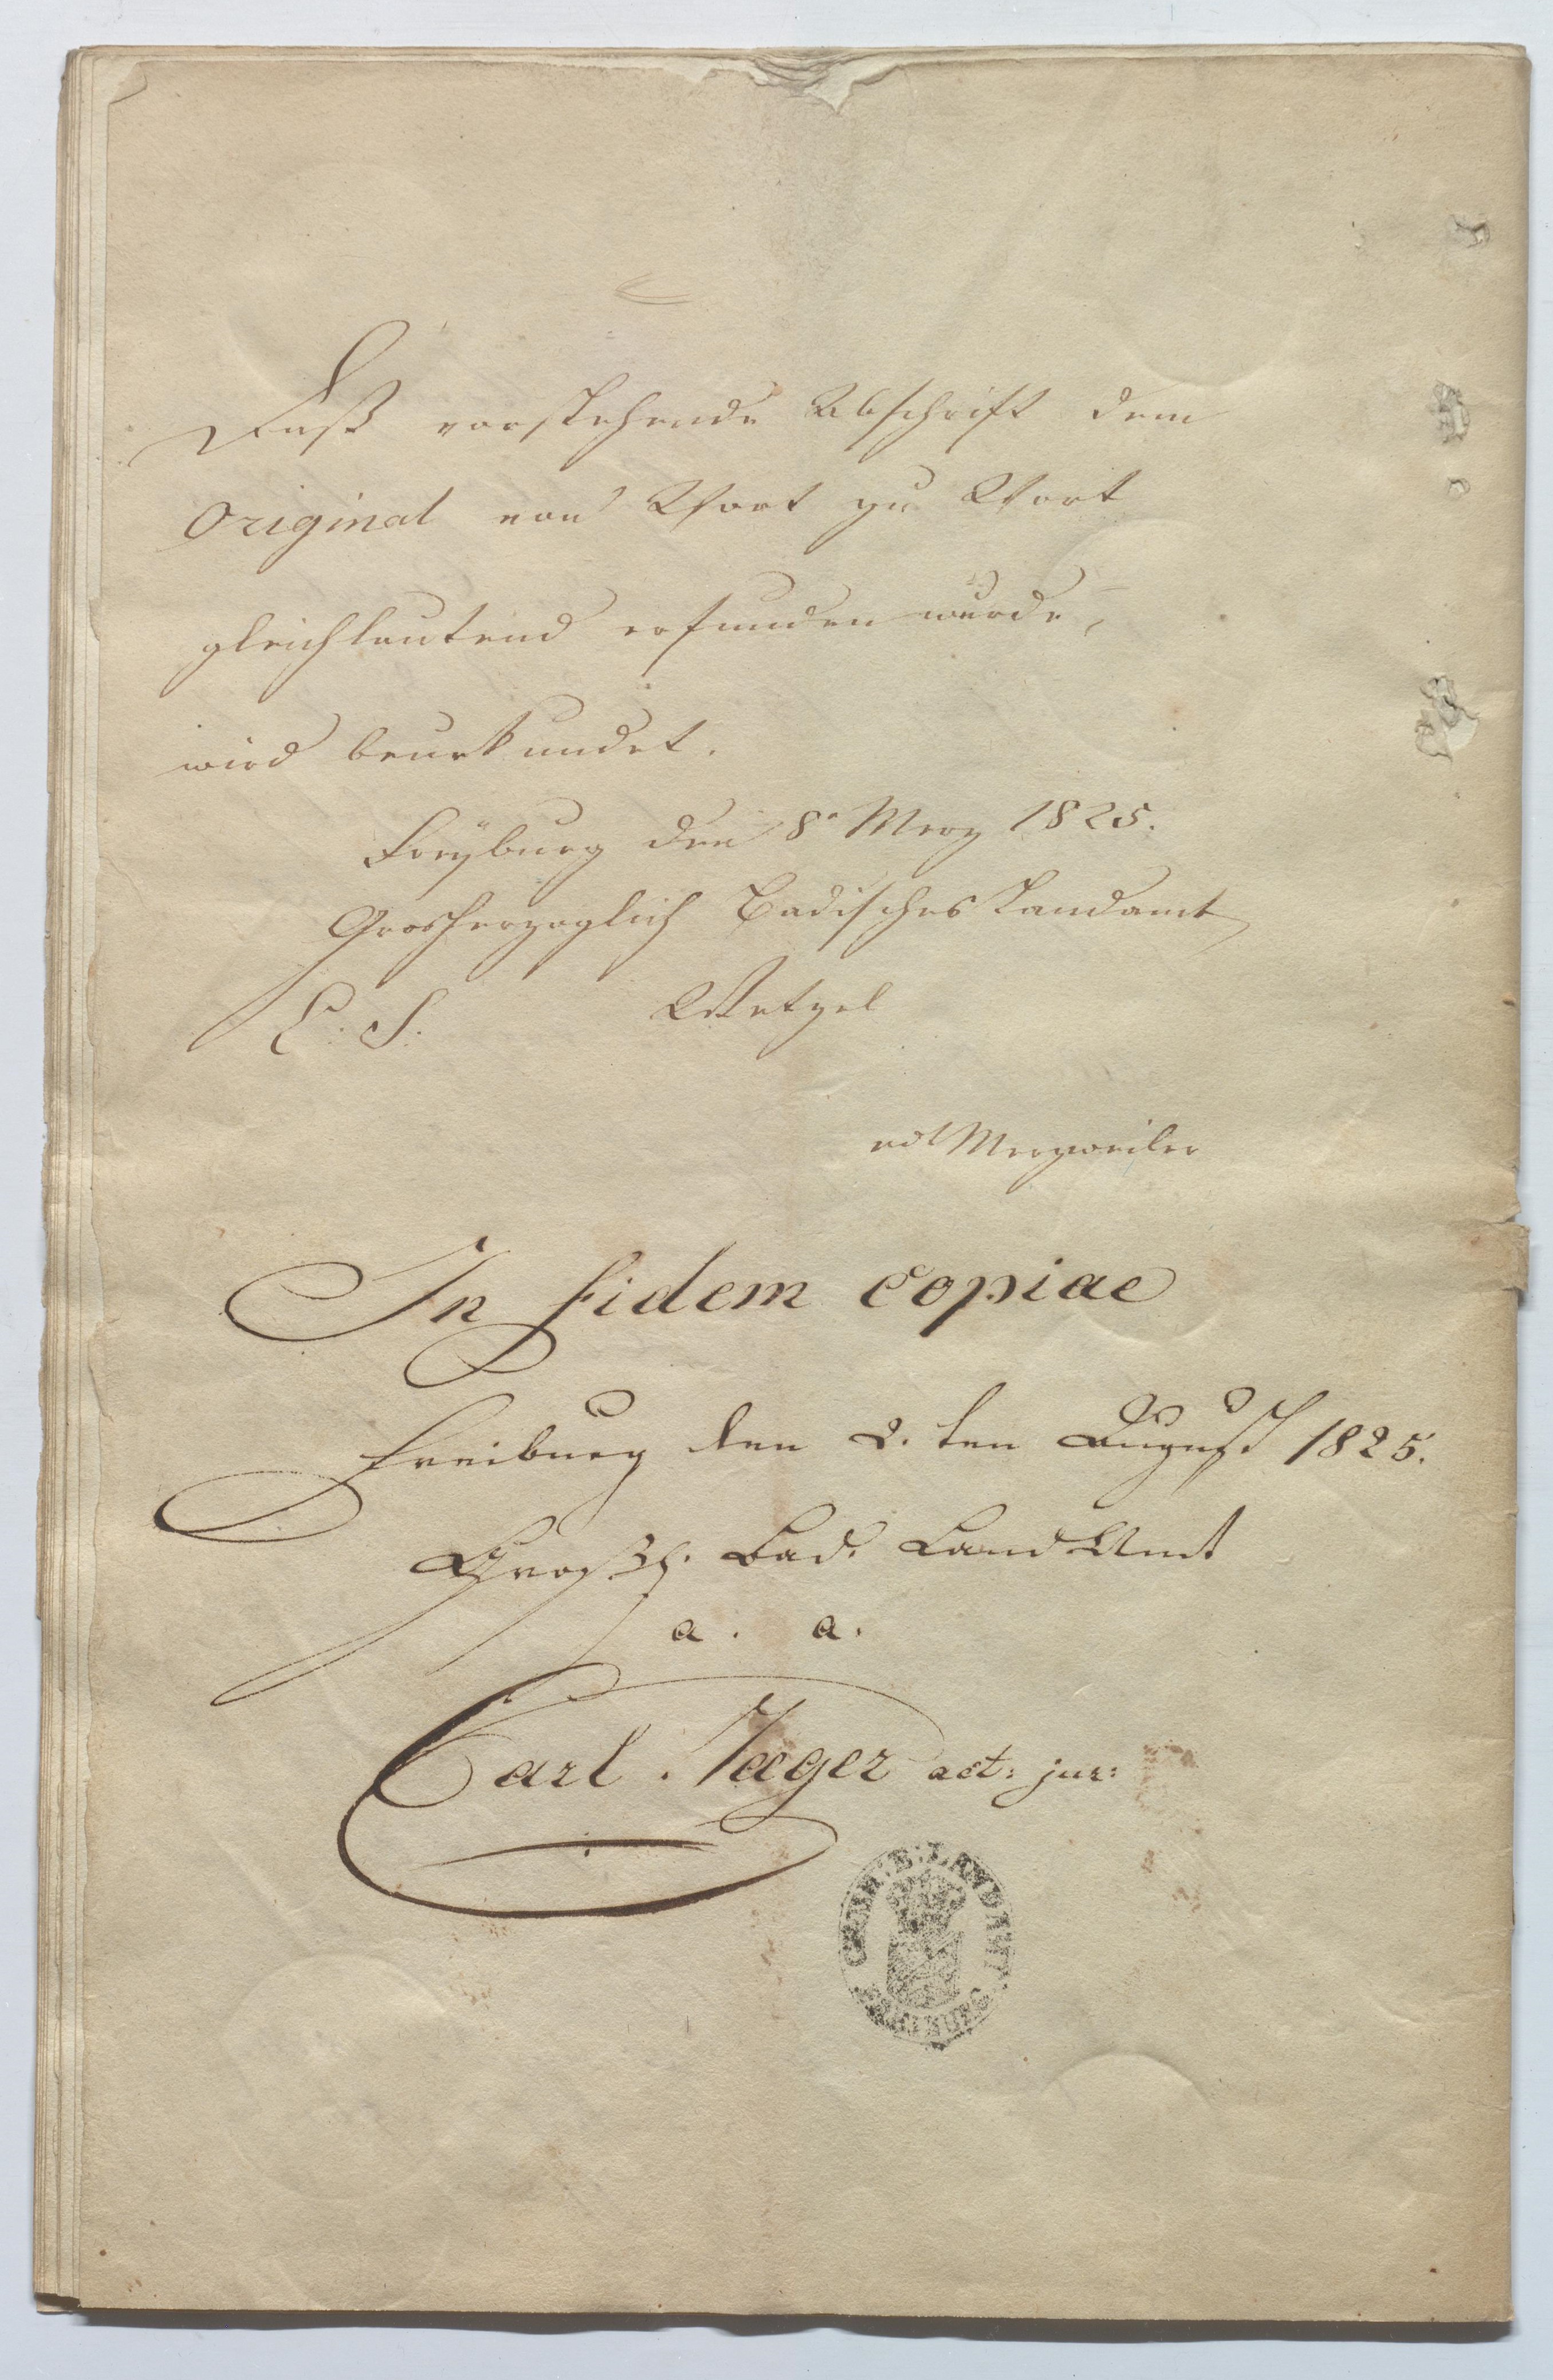 Daß vorstehende Abschrift dem
Original von Wort zu Wort
gleichlautend erfunden wurde,
wird beurkundet.
Freÿburg den 8n Merz 1825.
Grosherzoglich Badisches Landamt
L. S. Wetzel
vdt Merzweiler
In fidem copiae
Freiburg den 2.ten August 1825.
Großh. Bad. Land Amt
a. a.
Carl Jaeger act: jur:
GROSH: B: LANDAMT
FREIBURG